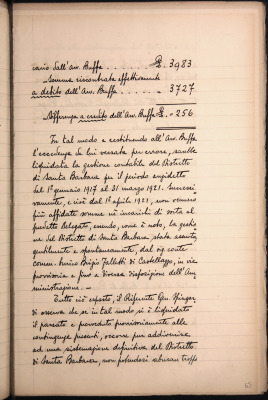 carió dall'Avv. Buffa . . . . . . £. 3983
Somme riscontrate effettivamente
a debito dell'Avv. Buffa . . . . . . " 3727
Differenza a credito dell'Avv. Buffa £. 256
In tal modo e restituendo all'Avv. Buffa
l'eccedenza da lui versata per errore, sarebbe
liquidata la gestione contabile del Distretto
di Santa Barbara per il periodo anzidetto
dal 1° gennaio 1917 al 31 marzo 1921. Successi-
vamente, e cioè dal 1° aprile 1921, non vennero
più affidate somme nè incarichi di sorta al
predetto Delegato, essendo, come è noto, la gestio-
ne del Distretto di Santa Barbara, stata assunta
gentilmente e spontaneamente, dal sig. conte
comm. Luigi Falletti di Castellazzo, in via
provvisoria e fino a diversa disposizione dell'Am-
ministrazione. —
Tutto ciò esposto, il Riferente
osserva che se in tal modo si è liquidato
il passato e provveduto provvisoriamente alle
contingenze presenti, occorre pur addivenire
ad una sistemazione definitiva del Distretto
di Santa Barbara, non potendosi abusare troppo